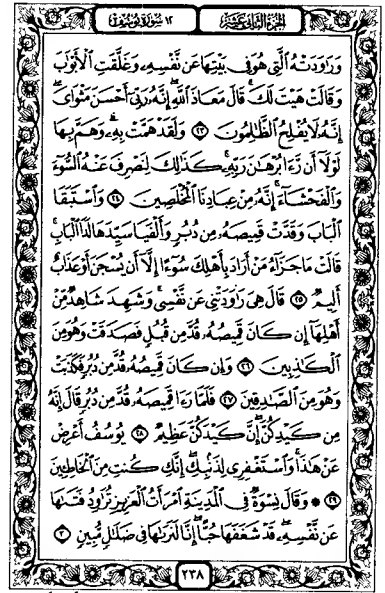 الجزء الثاني عشر ١٢ سورة يوسف
وَرَٰوَدَتْهُ ٱلَّتِى هُوَ فِى بَيْتِهَا عَن نَّفْسِهِۦ وَغَلَّقَتِ ٱلْأَبْوَٰبَ
وَقَالَتْ هَيْتَ لَكَ ۚ قَالَ مَعَاذَ ٱللَّهِ ۖ إِنَّهُۥ رَبِّىٓ أَحْسَنَ مَثْوَاىَ ۖ
إِنَّهُۥ لَا يُفْلِحُ ٱلظَّٰلِمُونَ ٢٣ وَلَقَدْ هَمَّتْ بِهِۦ ۖ وَهَمَّ بِهَا
لَوْلَآ أَن رَّءَا بُرْهَٰنَ رَبِّهِۦ ۚ كَذَٰلِكَ لِنَصْرِفَ عَنْهُ ٱلسُّوٓءَ
وَٱلْفَحْشَآءَ ۚ إِنَّهُۥ مِنْ عِبَادِنَا ٱلْمُخْلَصِينَ ٢٤ وَٱسْتَبَقَا
ٱلْبَابَ وَقَدَّتْ قَمِيصَهُۥ مِن دُبُرٍ وَأَلْفَيَا سَيِّدَهَا لَدَا ٱلْبَابِ ۚ
قَالَتْ مَا جَزَآءُ مَنْ أَرَادَ بِأَهْلِكَ سُوٓءًا إِلَّآ أَن يُسْجَنَ أَوْ عَذَابٌ
أَلِيمٌ ٢٥ قَالَ هِىَ رَٰوَدَتْنِى عَن نَّفْسِى ۚ وَشَهِدَ شَاهِدٌ مِّنْ
أَهْلِهَآ إِن كَانَ قَمِيصُهُۥ قُدَّ مِن قُبُلٍ فَصَدَقَتْ وَهُوَ مِنَ
ٱلْكَٰذِبِينَ ٢٦ وَإِن كَانَ قَمِيصُهُۥ قُدَّ مِن دُبُرٍ فَكَذَبَتْ
وَهُوَ مِنَ ٱلصَّٰدِقِينَ ٢٧ فَلَمَّا رَءَا قَمِيصَهُۥ قُدَّ مِن دُبُرٍ قَالَ إِنَّهُۥ
مِن كَيْدِكُنَّ ۖ إِنَّ كَيْدَكُنَّ عَظِيمٌ ٢٨ يُوسُفُ أَعْرِضْ
عَنْ هَٰذَا ۚ وَٱسْتَغْفِرِى لِذَنۢبِكِ ۖ إِنَّكِ كُنتِ مِنَ ٱلْخَاطِـِٔينَ
٢٩ * وَقَالَ نِسْوَةٌ فِى ٱلْمَدِينَةِ ٱمْرَأَتُ ٱلْعَزِيزِ تُرَٰوِدُ فَتَىٰهَا
عَن نَّفْسِهِۦ ۖ قَدْ شَغَفَهَا حُبًّا ۖ إِنَّا لَنَرَىٰهَا فِى ضَلَٰلٍ مُّبِينٍ ٣٠
٢٣٨